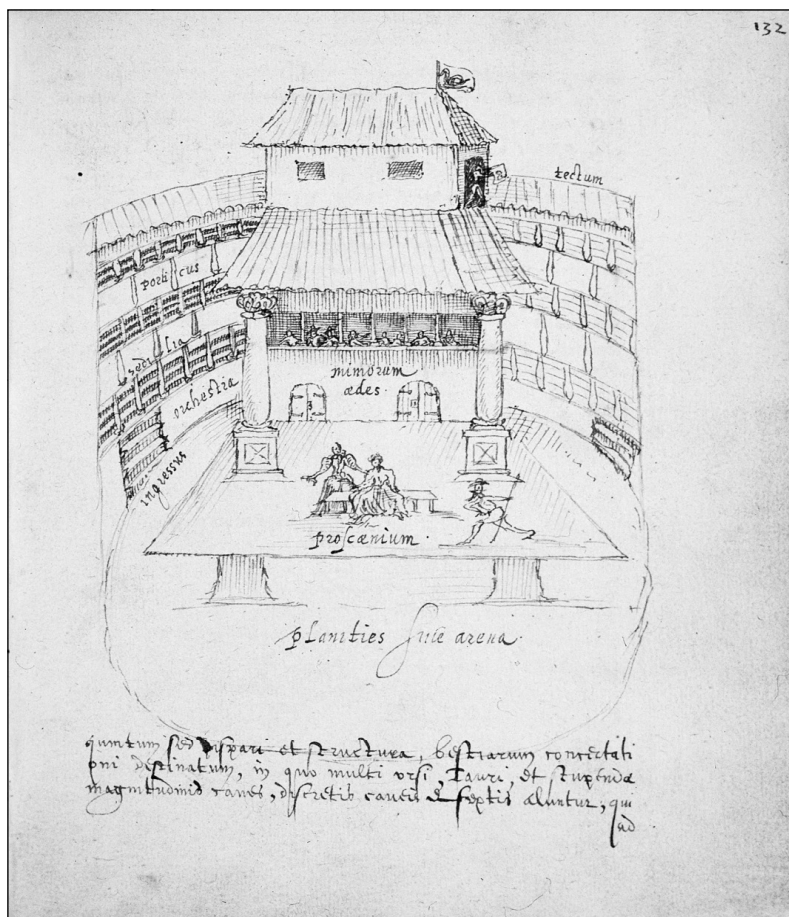 132
tectum
porticus
sedilia
orchestra
mimorum
ædes.
ingressus
proscænium.
planities sive arena.
quintum sed dispari et structura, bestiarum concertati
oni destinatum, in quo multi ursi, Tauri, et stupendæ
magnitudinis canes, discretis caveis & septis aluntur, qui
ad